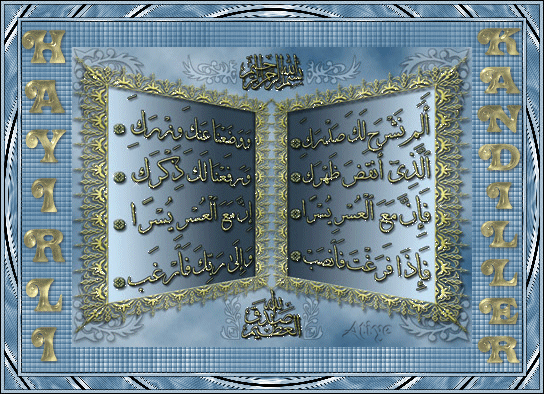 HAYIRLI
KANDILLER
بسم الله الرحمن الرحيم
أَلَمْ نَشْرَحْ لَكَ صَدْرَكَ
وَوَضَعْنَا عَنكَ وِزْرَكَ
الَّذِىٓ أَنقَضَ ظَهْرَكَ
وَرَفَعْنَا لَكَ ذِكْرَكَ
فَإِنَّ مَعَ الْعُسْرِ يُسْرًا
إِنَّ مَعَ الْعُسْرِ يُسْرًا
فَإِذَا فَرَغْتَ فَٱنصَبْ
وَإِلَىٰ رَبِّكَ فَٱرْغَب
صدق الله العظيم